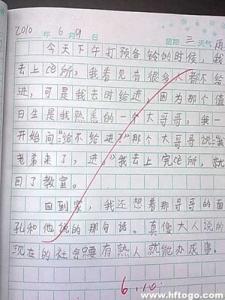 2010 年 6 月 9 日 星期 三 天气 雨
今天下午打预备铃的时候，我
去上厕所，我看见有很多 都不给
进，可是我去时给进，因为那个值
日生是我熟悉的一个大哥哥，我一
开始问“给不给进？”那个大哥哥说
我弟来了，进”我去上完厕所，就
回了教室。
回到家，我还想着那哥哥的面
孔和他说的那句话。真像大人说的
现在的社会 要有熟人就能办成事。
6.10
www.hftogo.com